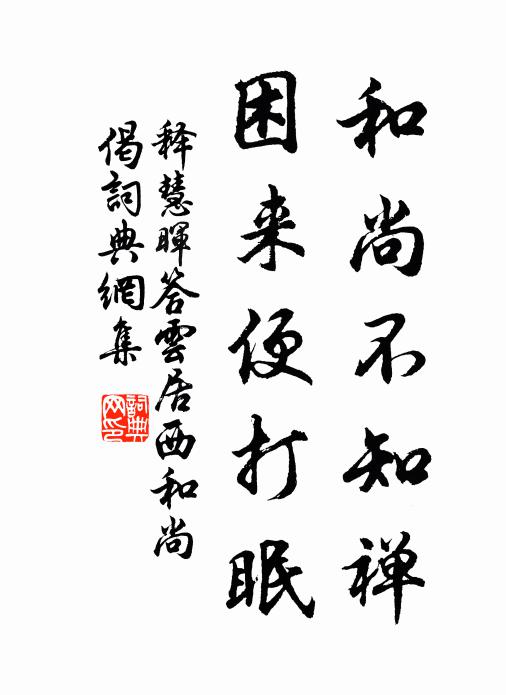 和尚不知禅
困来便打眠
释慧暉答雲居西和尚
偈詞典網集
詞典网印